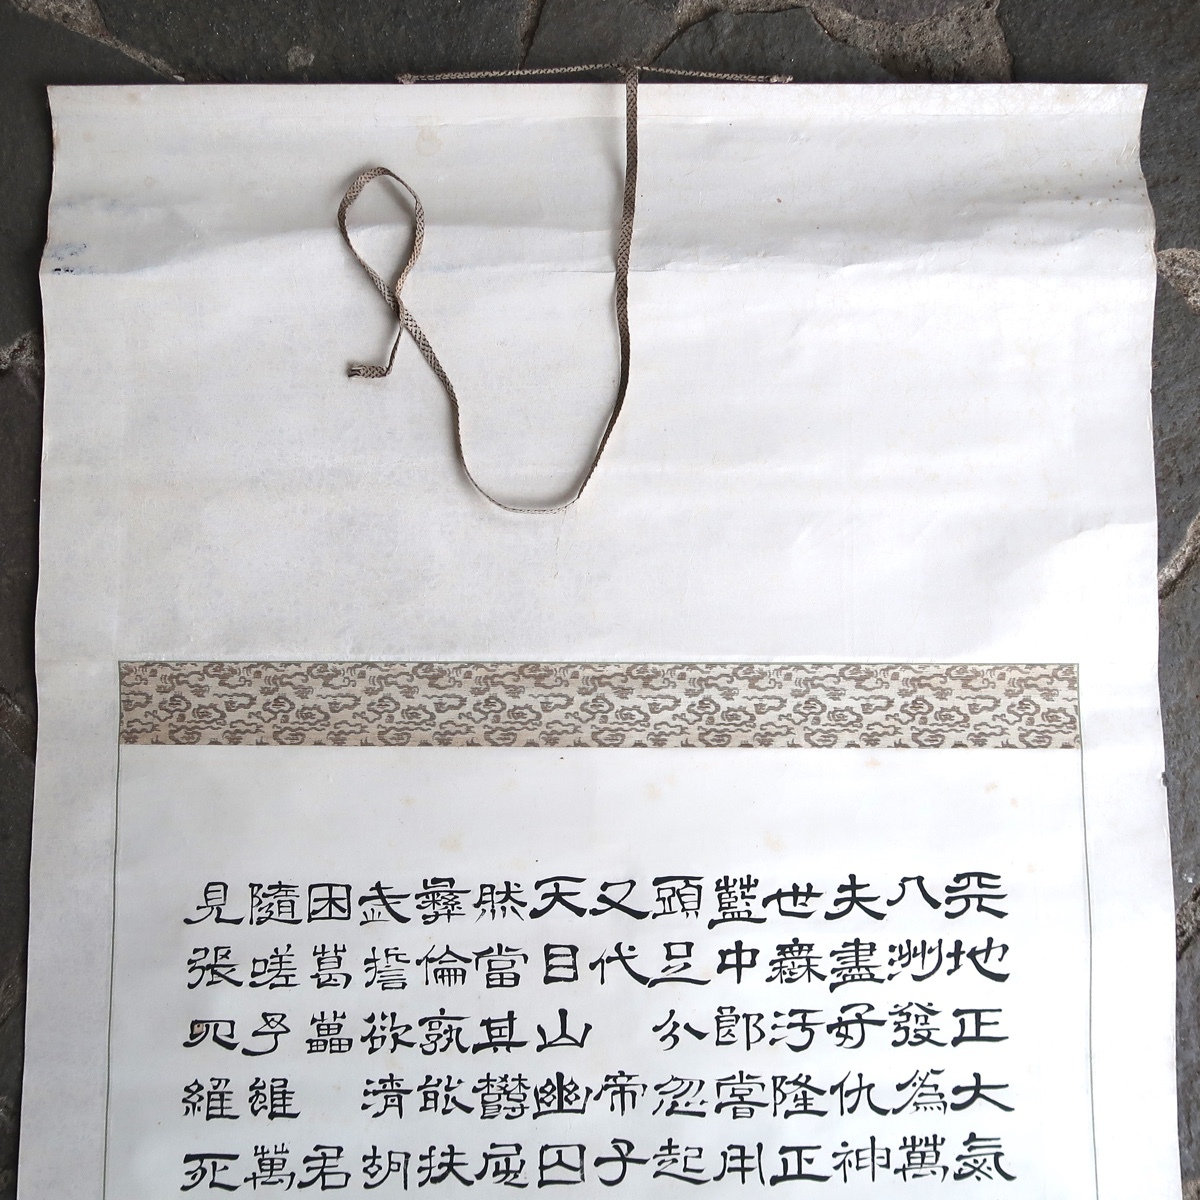 天地正大氣
八洲發爲萬
夫盡好仇神
世無汚隆正
藍中郎嘗用
頭足分忽起
又代　帝子
天目山幽囚
然當其鬱屈
彝倫孰能扶
志誓欲清胡
困葛藟　君
隨嗟予雖萬
見張四維死